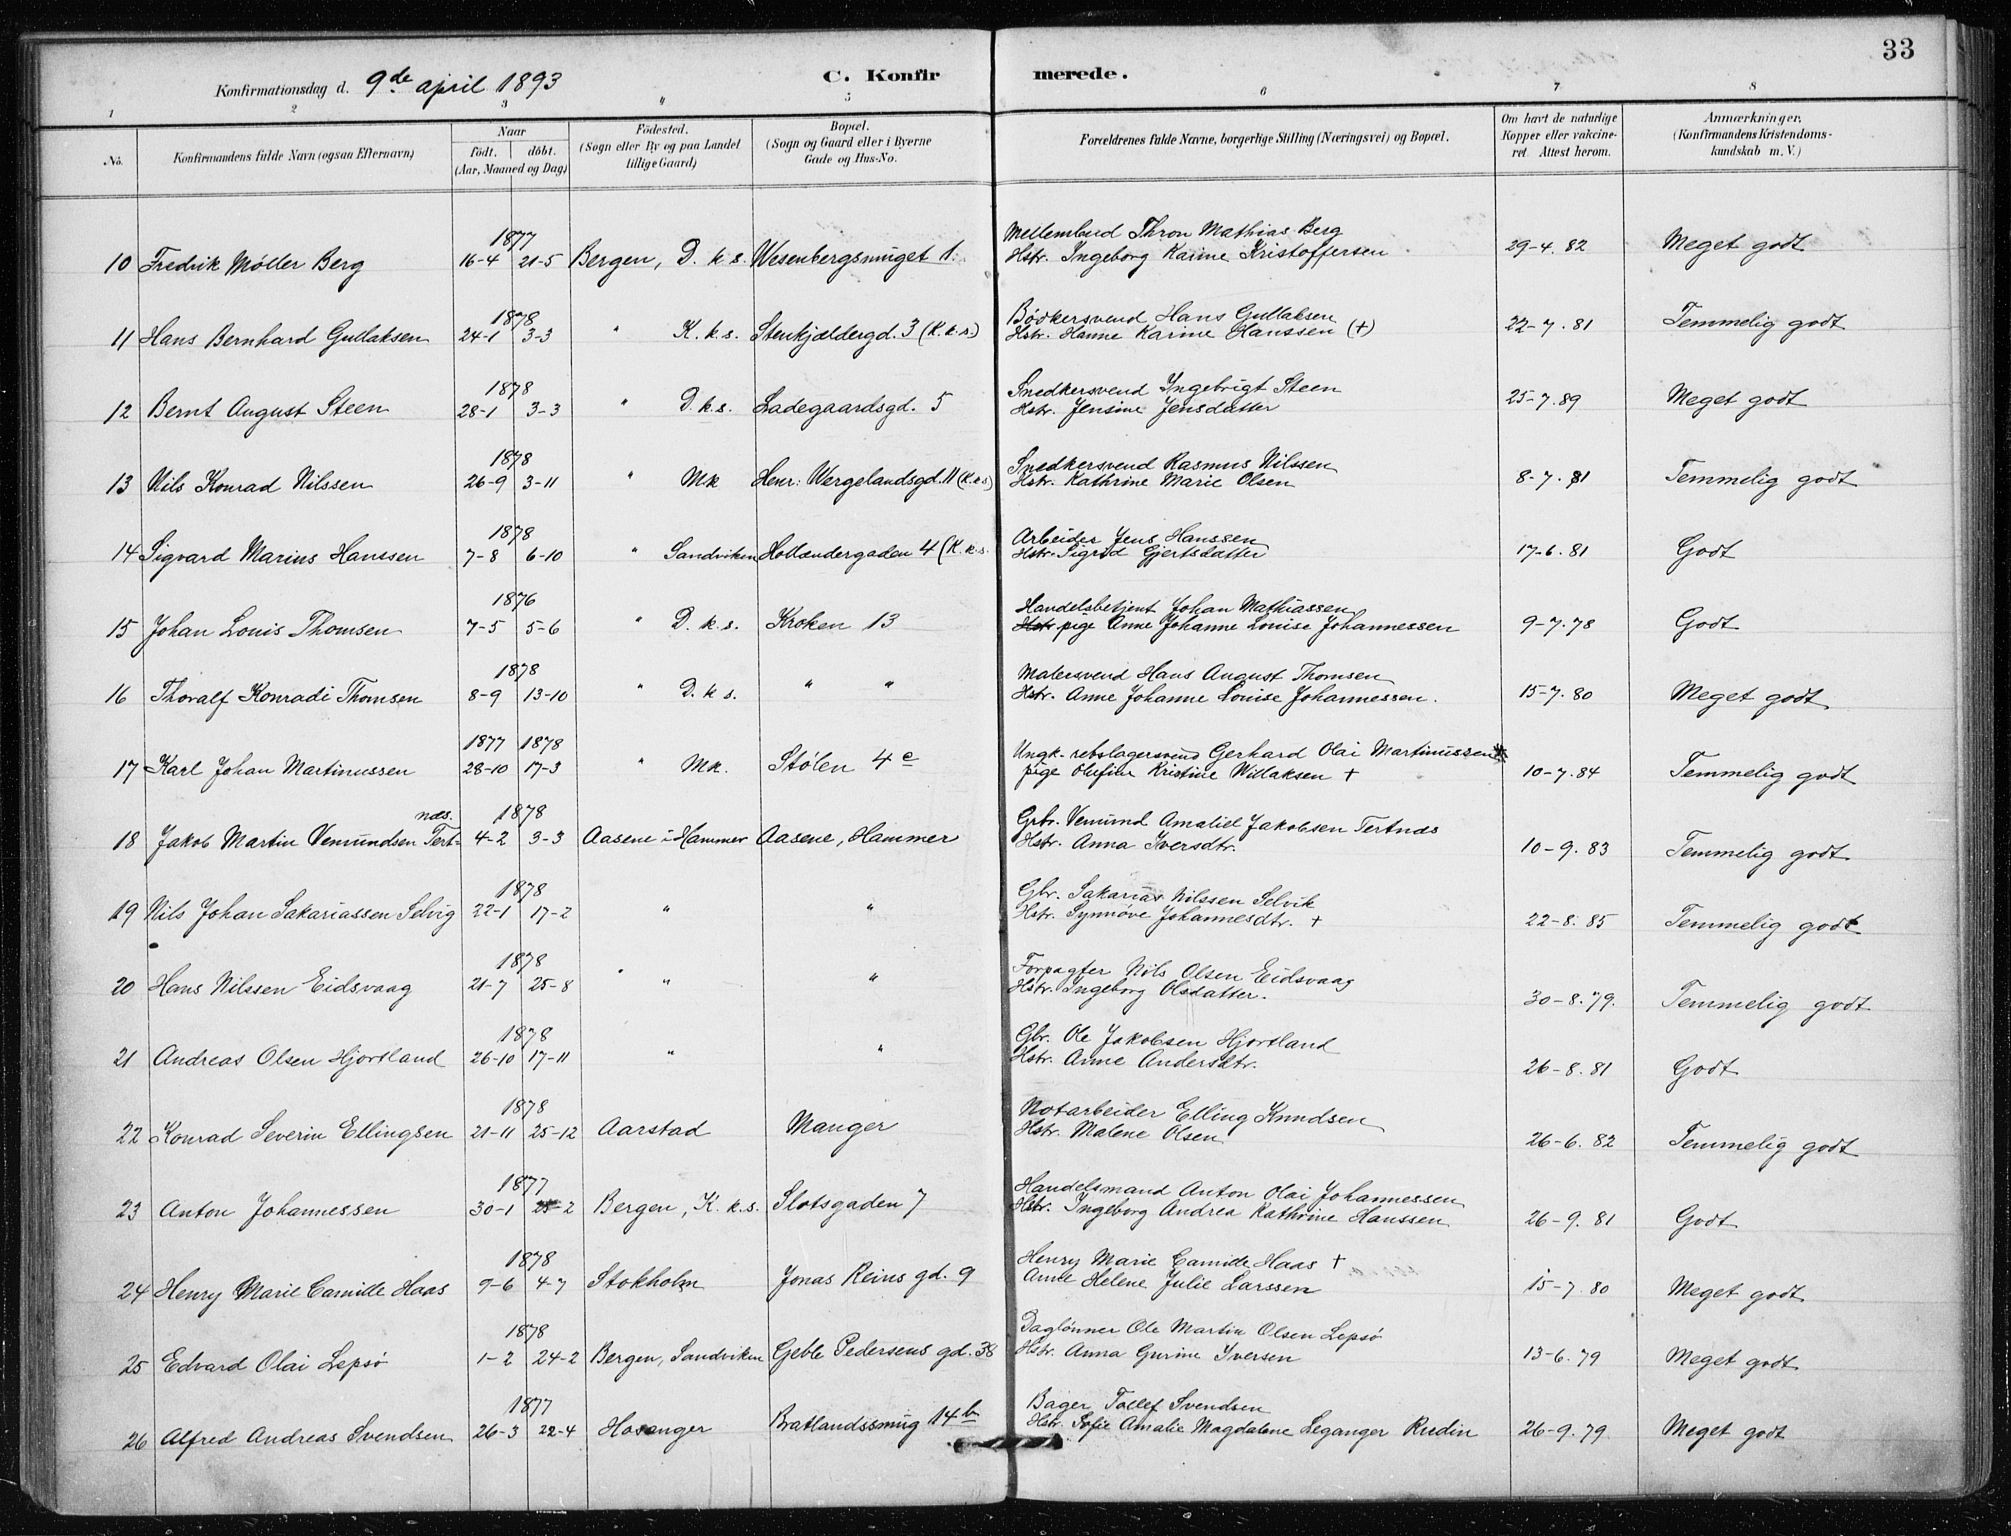 33
Konfirmationsdag d. 9de april 1893
C. Konfirmerede.
1 2 3 4 5 6 7 8
No. Konfirmandens fulde Navn (ogsaa Efternavn) Naar født. døbt. (Aar, Maaned og Dag) Födested. (Sogn eller By og paa Landet tillige Gaard) Bopæl. (Sogn og Gaard eller i Byerne Gade og Hus-No. Forældrenes fulde Navne, borgerlige Stilling (Næringsvei) og Bopæl. Om havt de naturlige Kopper eller vakcineret. Attest herom. Anmærkninger. (Konfirmandens Kristendomskundskab m. V.)
1877 Mellembud Thron Mathias Berg
10 Fredrik Møller Berg 16-4 21-5 Bergen, D. k. s. Wesenbergsmuget 1. Hstr. Ingeborg Karine Kristoffersen 29-4. 82 Meget godt
1878 Bødkersvend Hans Gullaksen
11 Hans Bernhard Gullaksen 24-1 3-3 " K. k. s. Stenkjældergd. 3 (K. k. s.) Hstr. Hanne Karine Hanssen (+) 22-7. 81 Temmelig godt
1878 Snedkersvend Ingebrigt Steen
12 Bernt August Steen 28-1 3-3 " D. k. s. Ladegaardsgd. 5 Hstr. Jensine Jensdatter 25-7. 89 Meget godt
1878 Snedkersvend Rasmus Nilssen
13 Nils Konrad Nilssen 26-9 3-11 " Mk Henr: Wergelandsgd. 11 (K. k. s) Hstr. Kathrine Marie Olsen 8-7. 81 Temmelig godt
1878 Arbeider Jens Hanssen
14 Sigvard Marius Hanssen 7-8 6-10 " Sandviken Hollændergaden 4 (K. k. s. Hstr. Sigrid Gjertsdatter 17-6. 81 Godt
1876 Handelsbetjent Johan Mathiassen
15 Johan Louis Thomsen 7-5 5-6 " D. k. s. Kroken 13 Hstr pige Anne Johanne Louise Johannessen 9-7. 78 Godt
1878 Malersvend Hans August Thomsen
16 Thoralf Konradi Thomsen 8-9 13-10 " D. k s. " " Hstr. Anne Johanne Louise Johannessen. 15-7. 80 Meget godt
1877 1878 Ungk. rebslagersvend Gerhard Olai Martinussen
17 Karl Johan Martinussen 28-10 17-3 " Mk. Stølen 4c pige Olufine Kristine Willaksen + 10-7. 84 Temmelig godt
næs. 1878 Grbr. Vemund Amaliel Jakobsen Tertnæs
18 Jakob Martin Vemundsen Tert- 4-2 3-3 Aasene i Hammer Aasene, Hammer Hstr. Anna Iversdtr. 10-9. 83 Temmelig godt
1878 Gbr. Sakarias Nilssen Selvik
19 Nils Johan Sakariassen Selvig 22-1 17-2 " " Hstr. Synnøve Johannesdtr. + 22-8. 85 Temmelig godt
1878 Forpagter Nils Olsen Eidsvaag
20 Hans Nilssen Eidsvaag 21-7 25-8 " " Hstr. Ingeborg Olsdatter. 30-8. 79. Temmelig godt
1878 Gbr. Ole Jakobsen Hjortland
21 Andreas Olsen Hjortland 26-10 17-11 " " Hstr. Anne Andersdtr. 26-8. 81 Godt
1878 Notarbeider Elling Knudsen
22 Konrad Severin Ellingsen 21-11 25-12 Aarstad Manger Hstr. Malene Olsen 26-6. 82 Temmelig godt
1877 Handelsmand Anton Olai Johannessen
23 Anton Johannessen 30-1 25-2 Bergen, K. k. s. Slotsgaden 7 Hstr. Ingeborg Andrea Kathrine Hanssen 26-9. 81 Godt
1878 Henry Marie Camille Haas +
24 Henry Marie Camille Haas 9-6 4-7 Stokholm Jonas Reins gd. 9 Helene Julie Larssen 15-7. 80 Meget godt
1878 Daglønner Ole Martin Olsen Lepsø
25 Edvard Olai Lepsø 1-2 24-2 Bergen, Sandviken Geble Pedersens gd. 38 Hstr. Anna Gurine Iversen 13-6. 79 Meget godt
1877 Bager Tollef Svendsen
26 Alfred Andreas Svendsen 26-3 22-4 Hosanger Bratlandssmug 14b Hstr. Sofie Amalie Magdalene Leganger Rudin 26-9. 79. Meget godt